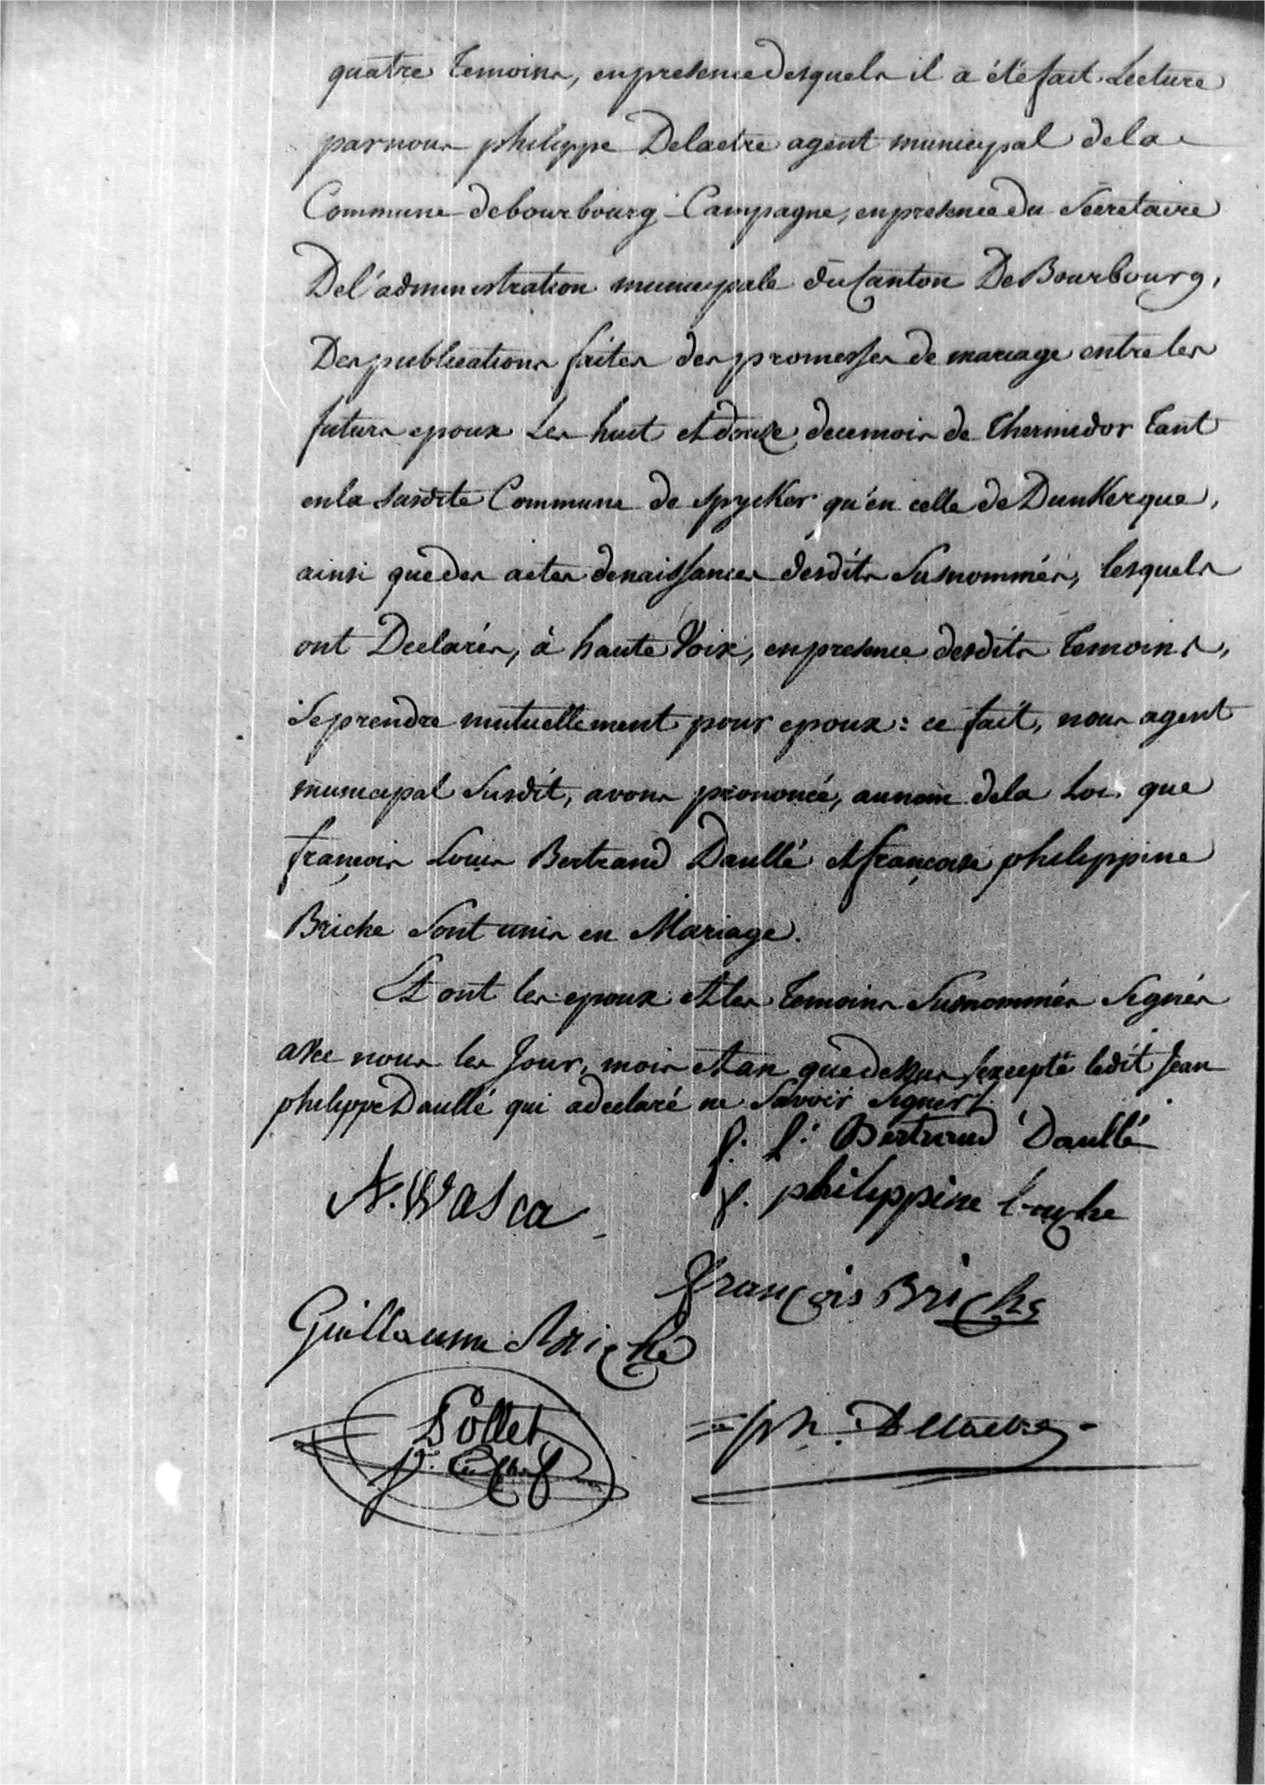 quatre temoins, en presence desquels il a été fait Lecture
par nous philippe Delaetre agent municipal de la
Commune de bourbourg-Campagne, en presence du Secretaire
De l'administration municipale du Canton De Bourbourg,
Des publications faites des promesses de mariage entre les
futurs epoux Les huit et douze de ce mois de Thermidor tant
en la susdite Commune de spycker qu'en celle de Dunkerque,
ainsi que des actes de naissances desdits Susnommés, lesquels
ont Declarés, à haute Voix, en presence desdits temoins,
se prendre mutuellement pour epoux: ce fait, nous agent
municipal Susdit, avons prononcé, au nom de la Loi que
françois Louis Bertrand Daullé et françoise philippine
Briche sont unis en Mariage.
Et ont les epoux et les temoins Susnommés Signés
avec nous les Jour, mois et an que dessus, excepté ledit Jean
philippe Daullé qui a declaré ne Savoir Signer
f. l. Bertrand Daullé
N. Wasca
f. philippine
François Briche
Guillaume Briche
Pollet
ph. Delaetre